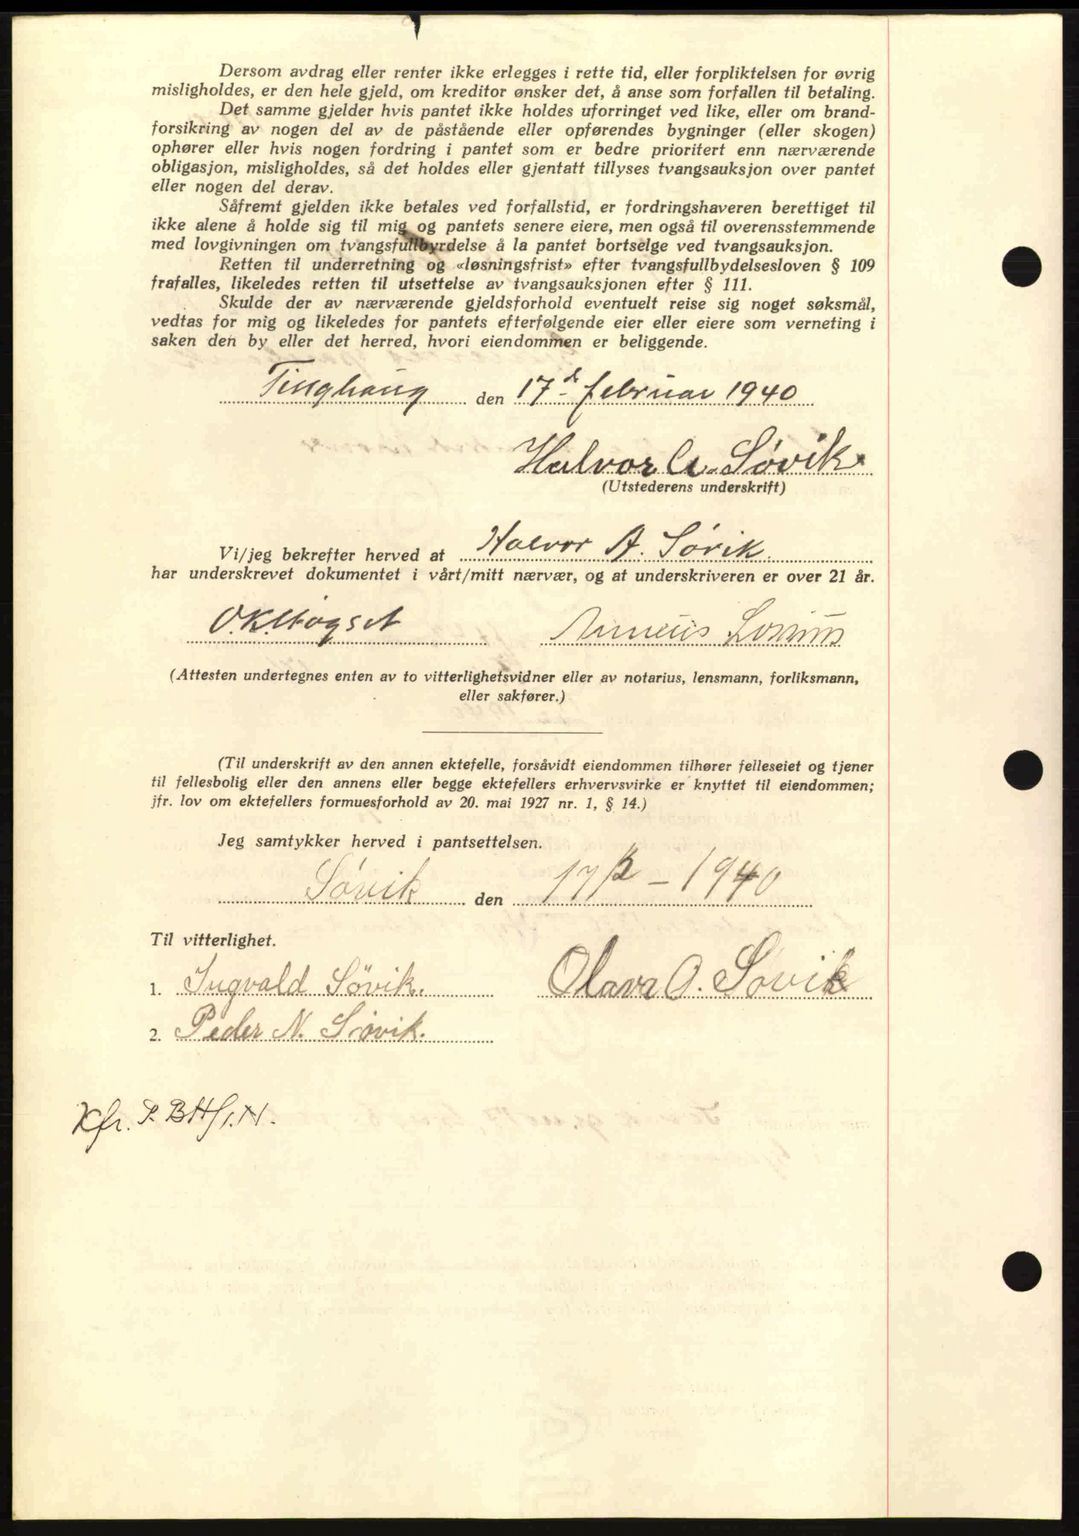 Dersom avdrag eller renter ikke erlegges i rette tid, eller forpliktelsen for øvrig
misligholdes, er den hele gjeld, om kreditor ønsker det, å anse som forfallen til betaling.
Det samme gjelder hvis pantet ikke holdes uforringet ved like, eller om brand-
forsikring av nogen del av de påstående eller opførendes bygninger (eller skogen)
ophører eller hvis nogen fordring i pantet som er bedre prioritert enn nærværende
obligasjon, misligholdes, så det holdes eller gjentatt tillyses tvangsauksjon over pantet
eller nogen del derav.
Såfremt gjelden ikke betales ved forfallstid, er fordringshaveren berettiget til
ikke alene å holde sig til mig og pantets senere eiere, men også til overensstemmende
med lovgivningen om tvangsfullbyrdelse å la pantet bortselge ved tvangsauksjon.
Retten til underretning og «løsningsfrist» efter tvangsfullbydelsesloven § 109
frafalles, likeledes retten til utsettelse av tvangsauksjonen efter § 111.
Skulde der av nærværende gjeldsforhold eventuelt reise sig noget søksmål,
vedtas for mig og likeledes for pantets efterfølgende eier eller eiere som verneting i
saken den by eller det herred, hvori eiendommen er beliggende.
Tinghaug den 17d februar 1940
Halvor A. Søvik
(Utstederens underskrift)
Vi/jeg bekrefter herved at Halvor A. Søvik
har underskrevet dokumentet i vårt/mitt nærvær, og at underskriveren er over 21 år.
O.K. Høgset
(Attesten undertegnes enten av to vitterlighetsvidner eller av notarius, lensmann, forliksmann,
eller sakfører.)
(Til underskrift av den annen ektefelle, forsåvidt eiendommen tilhører felleseiet og tjener
til fellesbolig eller den annens eller begge ektefellers erhvervsvirke er knyttet til eiendommen;
jfr. lov om ektefellers formuesforhold av 20. mai 1927 nr. 1, § 14.)
Jeg samtykker herved i pantsettelsen.
Søvik den 17/2 - 1940
Til vitterlighet.
1. Ingvald Søvik. Olava O. Søvik
2. Peder N. Søvik.
Kfr.